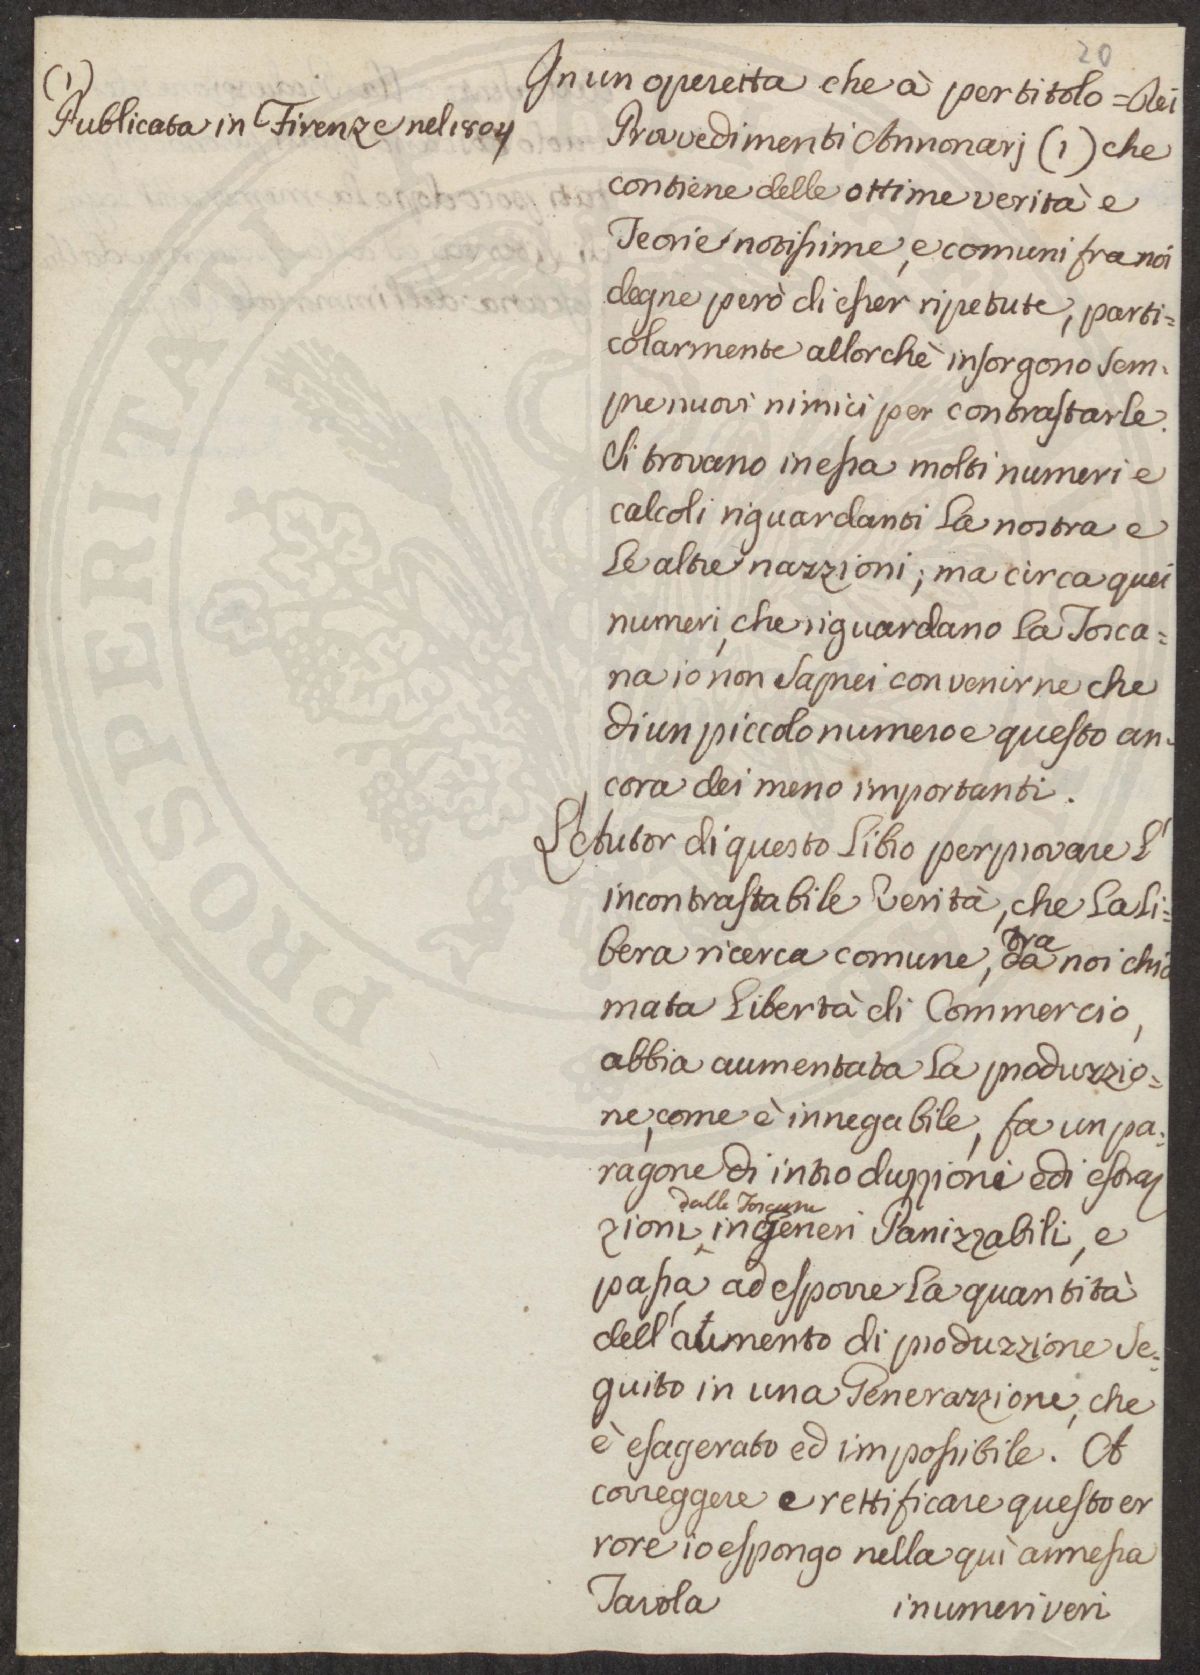 20
(1)
Publicata in Firenze nel 1804
In un operetta che à per titolo = Dei
Provvedimenti Annonarj (1) che
contiene delle ottime verità e
Teorie notissime, e comuni fra noi
degne però di esser ripetute, parti=
colarmente allorchè insorgono sem=
pre nuovi nimici per contrastarle.
Si trovano in essa molti numeri e
calcoli riguardanti la nostra e
le altre nazzioni; ma circa quei
numeri, che riguardano la Tosca=
na io non saprei convenirne che
di un piccolo numero e questo an=
cora dei meno importanti.
L'Autor di questo Libro per provare l'
incontrastabile verità, che la li=
bera ricerca comune, tra noi chia
mata Libertà di Commercio,
abbia aumentata la produzzio=
ne, come è innegabile, fa un pa=
ragone di introduzzioni e di estraz
zioni dalla Toscana in Generi Panizzabili, e
passa ad esporre la quantità
dell'aumento di produzzione se=
guito in una Generazzione, che
è esagerato ed impossibile. A
correggere e rettificare questo er
rore io espongo nella quì annessa
Tavola i numeri veri
PROSPERITATI